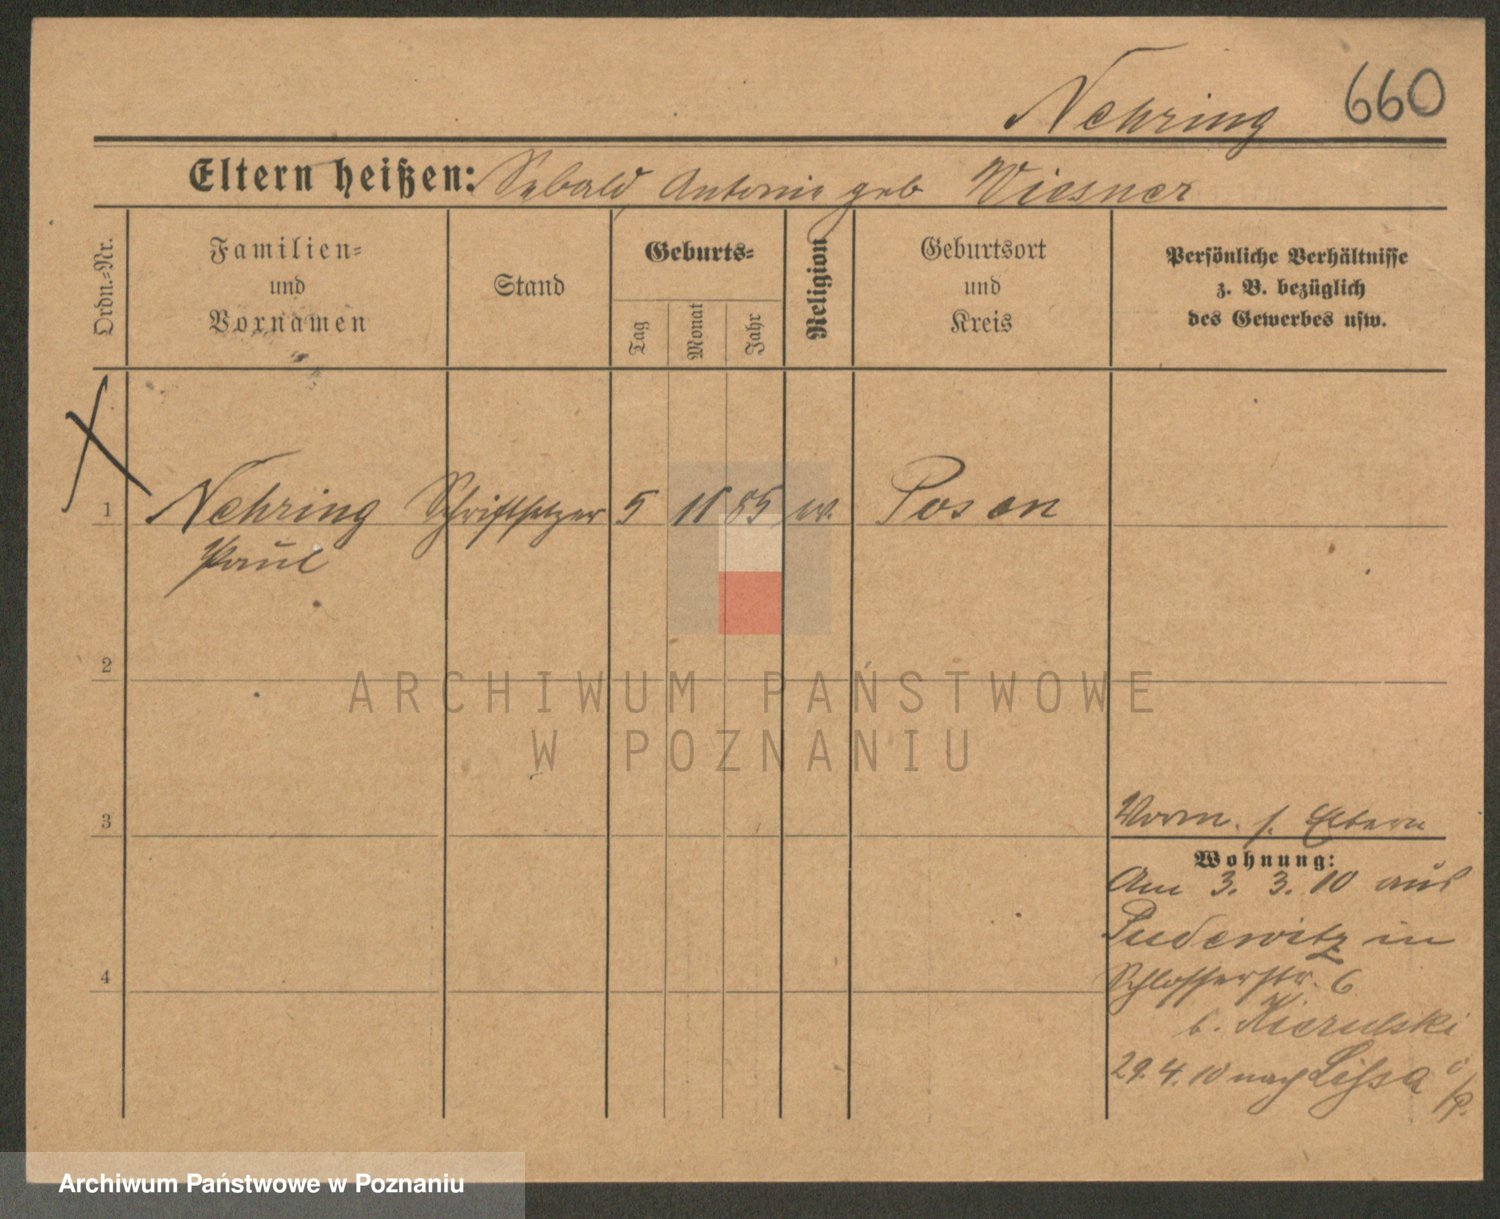 Nehring 660
Eltern heißen: Sebald, Antonie geb Wiesner
Ordn.-Nr.
Familien-
und
Vornamen
Stand
Geburts-
Tag
Monat
Jahr
Religion
Geburtsort
und
Kreis
Persönliche Verhältnisse
z. B. bezüglich
des Gewerbes usw.
1 Nehring Schriftsetzer 5 11 85 Posen
Paul
2
3
4
Vorm. s. Eltern
Wohnung:
Am 3. 3. 10 aus
Pudewitz in
Schlosserstr. 6
b.
29.4.10 nach Lissa i/P.
ARCHIWUM PAŃSTWOWE
W POZNANIU
Archiwum Państwowe w Poznaniu